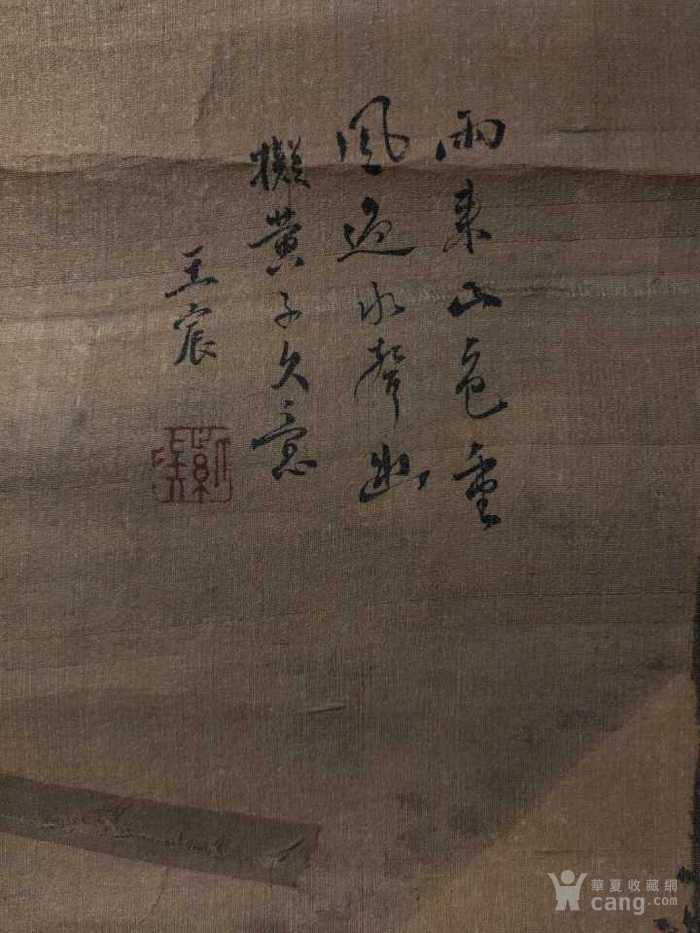 雨来山色重
風過水聲幽
擬黄子久意
王宸
華夏收藏網
cang.com